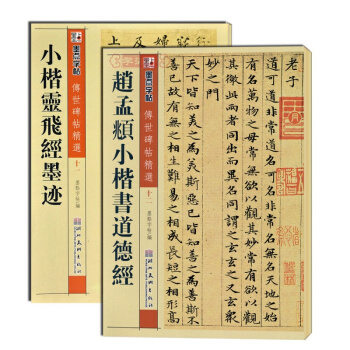 墨点字帖
傳世碑帖精選 十一
小楷靈飛經墨迹
湖北美術出版社
墨点字帖
傳世碑帖精選 十二
趙孟頫小楷書道德經
墨點字帖 編
湖北美術出版社
老子
道可道非常道名可名非常名無名天地之始
有名萬物之母常無欲以觀其妙常有欲以觀
其徼此兩者同出而異名同謂之玄玄之又玄衆
妙之門
天下皆知美之為美斯惡已皆知善之為善斯不
善已故有無之相生難易之相成長短之相形高